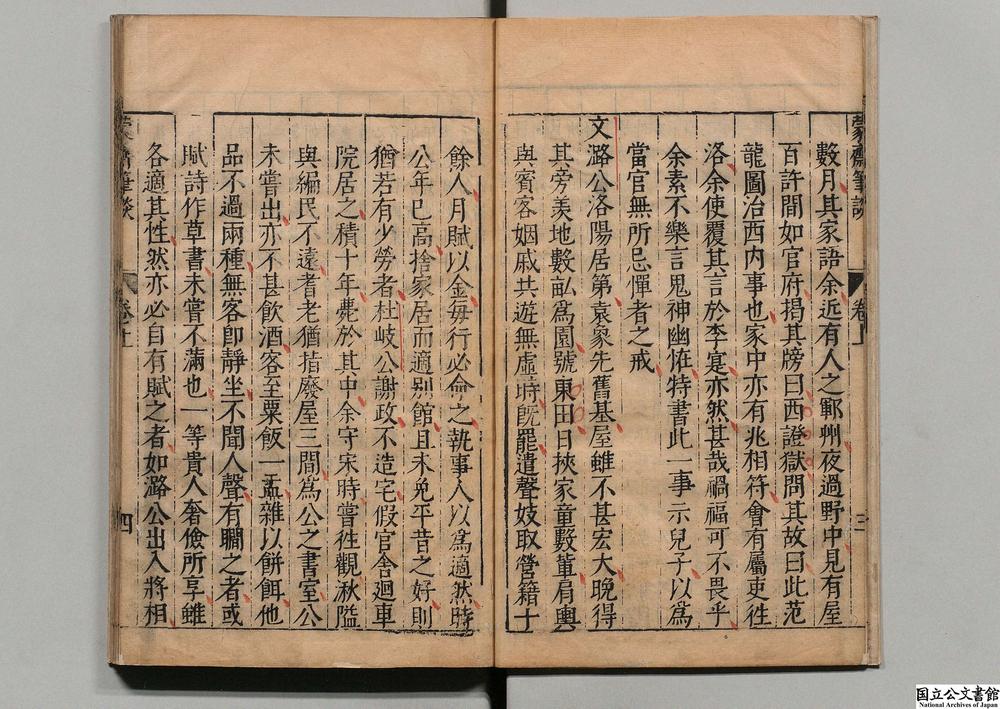 蒙齋筆談
卷上
三
數月其家語余近有人之鄆州夜過野中見有屋
百許間如官府揭其牓曰西證獄問其故曰此范
龍圖治西內事也家中亦有兆相符會有屬吏往
洛余使覆其言於李寔亦然甚哉禍福可不畏乎
余素不樂言鬼神幽恠特書此一事示兒子以爲
當官無所忌憚者之戒
文潞公洛陽居第袁象先舊基屋雖不甚宏大晚得
其旁羡地數畝爲園號東田日挾家童數輩肩輿
與賓客姻戚共遊無虛時旣罷遣聲妓取營籍十
餘人月賦以金每行必命之執事人以爲適然時
公年已高捨家居而適別館且未免平昔之好則
猶若有少勞者杜岐公謝政不造宅假官舍迴車
院居之積十年薨於其中余守宋時嘗徃觀湫隘
與編民不遠耆老猶指廢屋三間爲公之書室公
未嘗出亦不甚飲酒客至粟飯一盂雜以餅餌他
品不過兩種無客卽靜坐不聞人聲有覸之者或
賦詩作草書未嘗不滿也一等貴人奢儉所享雖
各適其性然亦必自有賦之者如潞公出入將相
蒙齋筆談
卷上
四
国立公文書館
National Archives of Japan